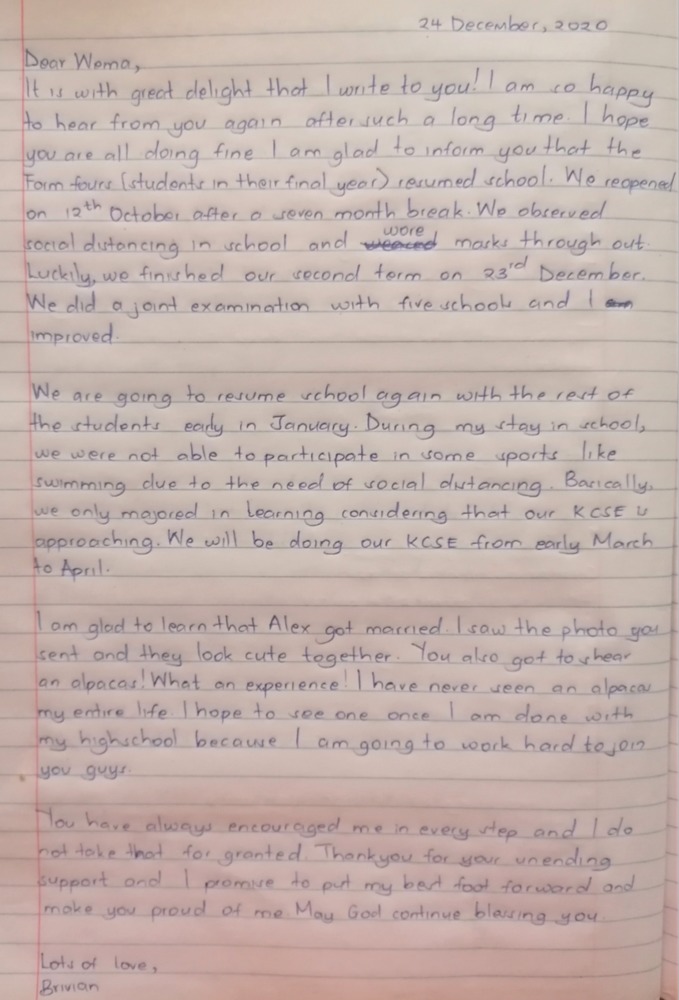 24 December, 2020
Dear Wema,
It is with great delight that I write to you! I am so happy
to hear from you again after such a long time. I hope
you are all doing fine I am glad to inform you that the
Form fours (students in their final year) resumed school. We reopened
on 12th October after a seven month break. We observed
social distancing in school and wore masks through out.
Luckily, we finished our second term on 23rd December.
We did a joint examination with five schools and I
improved.
We are going to resume school again with the rest of
the students early in January. During my stay in school,
we were not able to participate in some sports like
swimming due to the need of social distancing. Basically,
we only majored in learning considering that our KCSE is
approaching. We will be doing our KCSE from early March
to April.
I am glad to learn that Alex got married. I saw the photo you
sent and they look cute together. You also got to shear
an alpacas! What an experience! I have never seen an alpaca
my entire life. I hope to see one once I am done with
my highschool because I am going to work hard to join
you guys.
You have always encouraged me in every step and I do
not take that for granted. Thankyou for your unending
support and I promise to put my best foot forward and
make you proud of me May God continue blessing you
Lots of love,
Brivian